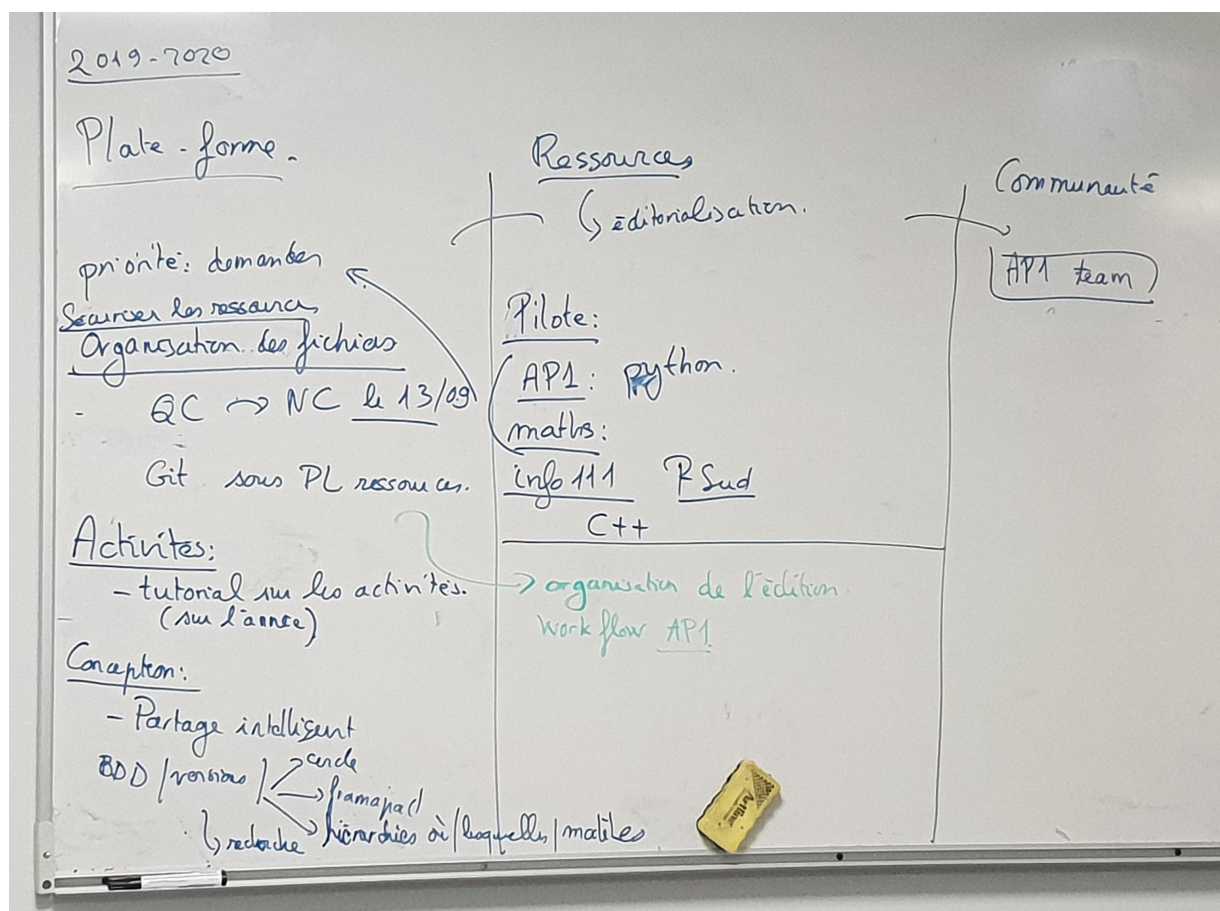 2019-2020
Plate-forme.
priorité: demander
Sécuriser les ressources
Organisation des fichiers
- QC → NC le 13/09
Git sous PL ressources.
Activités:
- tutorial sur les activités.
(sur l'année)
Conception:
- Partage intelligent
BDD / versions /
→ cercle
→ framapad
→ hiérarchies où / lesquelles /
↳ recherche
Ressources
↳ éditorialisation.
Pilote:
AP1: python.
maths:
info 111 PSud
C++
→ organisation de l'édition
Workflow AP1
Communauté
AP1 team
Artline